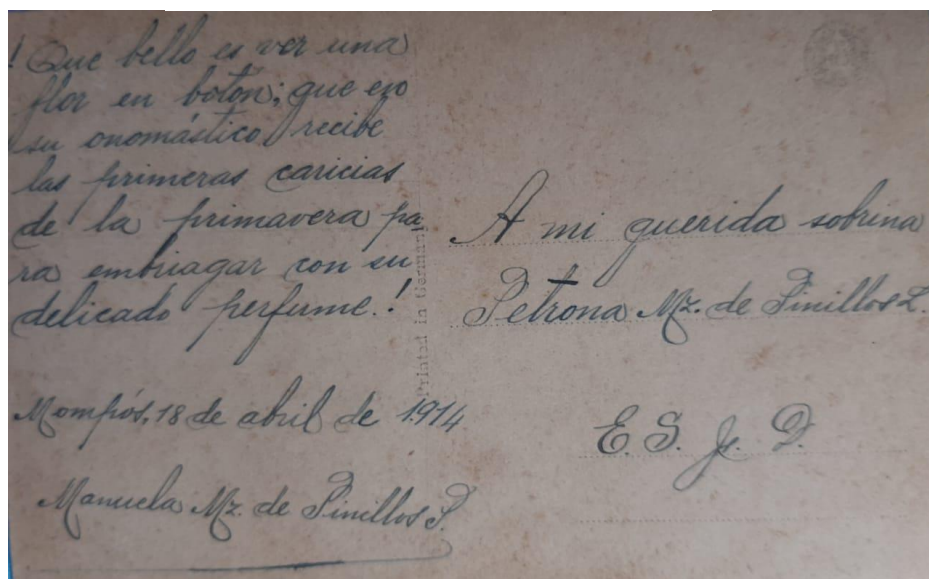 ! Que bello es ver una
flor en botón; que en
su onomástico recibe
las primeras caricias
de la primavera pa,
ra embriagar con su
delicado perfume.!
Mompós, 18 de abril de 1914
Manuela Mz. de Pinillos P.
Printed in Germany
A mi querida sobrina
Petrona Mz. de Pinillos L.
E. S. y. D.